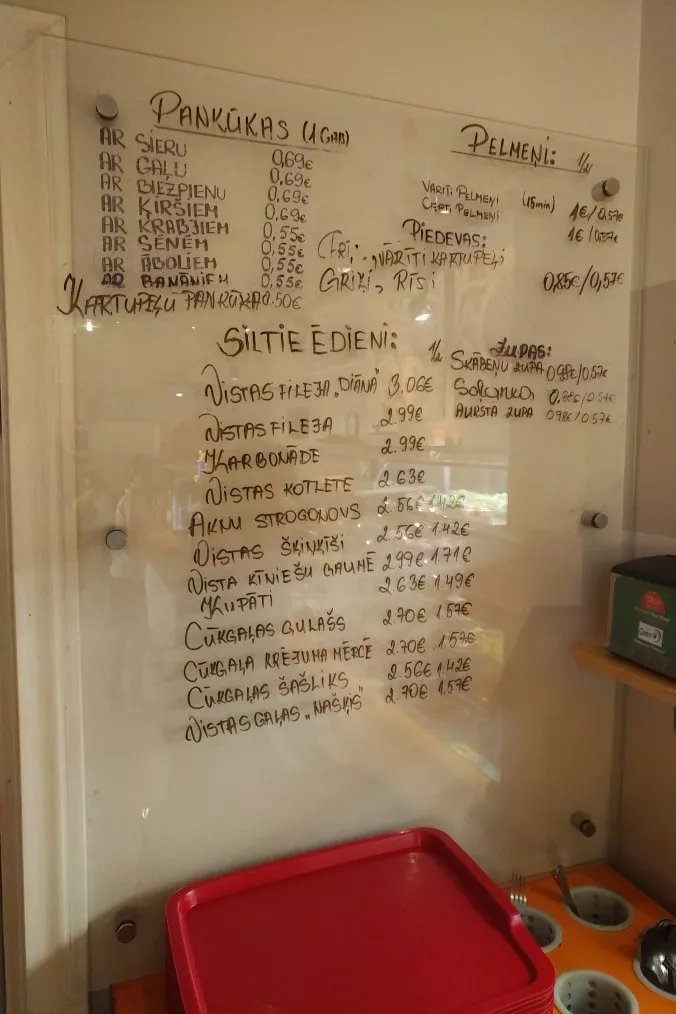 PANKŪKAS (1 GAB)
AR SIERU 0,69€
AR GAĻU 0,69€
AR BIEZPIENU 0,69€
AR ĶIRŠIEM 0,69€
AR KRABJIEM 0,55€
AR SĒNĒM 0,55€
AR ĀBOLIEM 0,55€
AR BANĀNIEM 0,55€
KARTUPEĻU PANKŪKA 0.50€
PELMEŅI: 1/2
VĀRĪTI PELMEŅI (15min) 1€/0,57€
CEPTI PELMEŅI 1€/0,57€
PIEDEVAS:
FRĪ, VĀRĪTI KARTUPEĻI
GRIĶI, RĪSI 0,85€/0,57€
SILTIE ĒDIENI: 1/2
VISTAS FILEJA „DIĀNA" 3.06€
VISTAS FILEJA 2.99€
KARBONĀDE 2.99€
VISTAS KOTLETE 2.63€
AKNU STROGONOVS 2.56€ 1.42€
VISTAS ŠĶIŅĶĪŠI 2.56€ 1.42€
VISTA ĶĪNIEŠU GAUMĒ 2.99€ 1.71€
KUPĀTI 2.63€ 1.49€
CŪKGAĻAS GULAŠS 2.70€ 1.57€
CŪKGAĻA KRĒJUMA MĒRCĒ 2.70€ 1.57€
CŪKGAĻAS ŠAŠLIKS 2.56€ 1.42€
VISTAS GAĻAS „NAŠĶIS" 2.70€ 1.57€
ZUPAS:
SKĀBEŅU ZUPA 0,98€/0,57€
Soļanka 0,98€/0,57€
AUKSTA ZUPA 0,98€/0,57€